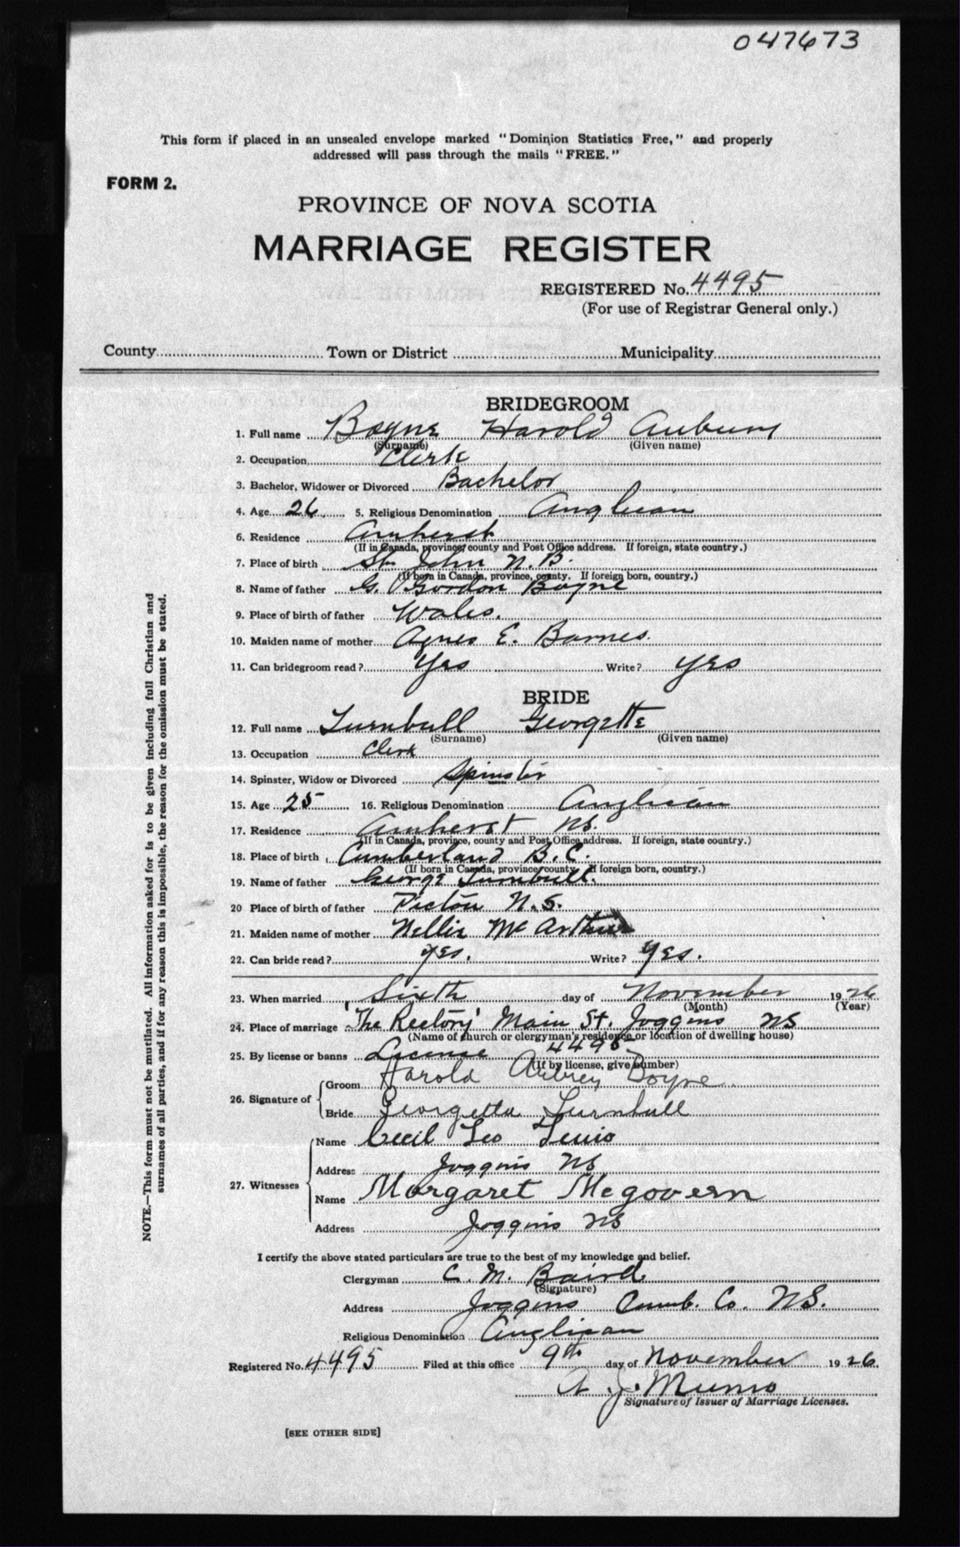 047673
This form if placed in an unsealed envelope marked "Dominion Statistics Free," and properly
addressed will pass through the mails "FREE."
FORM 2.
PROVINCE OF NOVA SCOTIA
MARRIAGE REGISTER
REGISTERED No. 4495
(For use of Registrar General only.)
County Town or District Municipality
BRIDEGROOM
1. Full name Boyne Harold Auburn
(Surname) (Given name)
2. Occupation Clerk
3. Bachelor, Widower or Divorced Bachelor
4. Age 26 5. Religious Denomination Anglican
6. Residence Amherst
(If in Canada, province, county and Post Office address. If foreign, state country.)
7. Place of birth St. John N.B.
(If born in Canada, province, county. If foreign born, country.)
8. Name of father G. Gordon Boyne
9. Place of birth of father Wales.
10. Maiden name of mother Agnes E. Barnes.
11. Can bridegroom read? Yes Write? Yes
BRIDE
12. Full name Turnbull Georgette
(Surname) (Given name)
13. Occupation Clerk
14. Spinster, Widow or Divorced Spinster
15. Age 25 16. Religious Denomination Anglican
17. Residence Amherst NS.
(If in Canada, province, county and Post Office address. If foreign, state country.)
18. Place of birth Cumberland B.C.
(If born in Canada, province, county. If foreign born, country.)
19. Name of father George Turnbull.
20 Place of birth of father Pictou N.S.
21. Maiden name of mother Nellie McArthur
22. Can bride read? Yes. Write? Yes.
23. When married Sixth day of November 1926
(Month) (Year)
24. Place of marriage "The Rectory" Main St. Joggins NS
(Name of church or clergyman's residence or location of dwelling house)
25. By license or banns License 4495
(If by license, give number)
26. Signature of Groom Harold Aubrey Boyne
Bride Georgetta Turnbull
27. Witnesses Name Cecil Leo
Address Joggins NS
Name Margaret McGovern
Address Joggins NS
I certify the above stated particulars are true to the best of my knowledge and belief.
Clergyman C. M. Baird
(Signature)
Address Joggins Cumb. Co. NS.
Religious Denomination Anglican
Registered No. 4495 Filed at this office 9th day of November 1926.
A. J. Munro
Signature of Issuer of Marriage Licenses.
[SEE OTHER SIDE]
NOTE.—This form must not be mutilated. All information asked for is to be given including full Christian and
surnames of all parties, and if for any reason this is impossible, the reason for the omission must be stated.